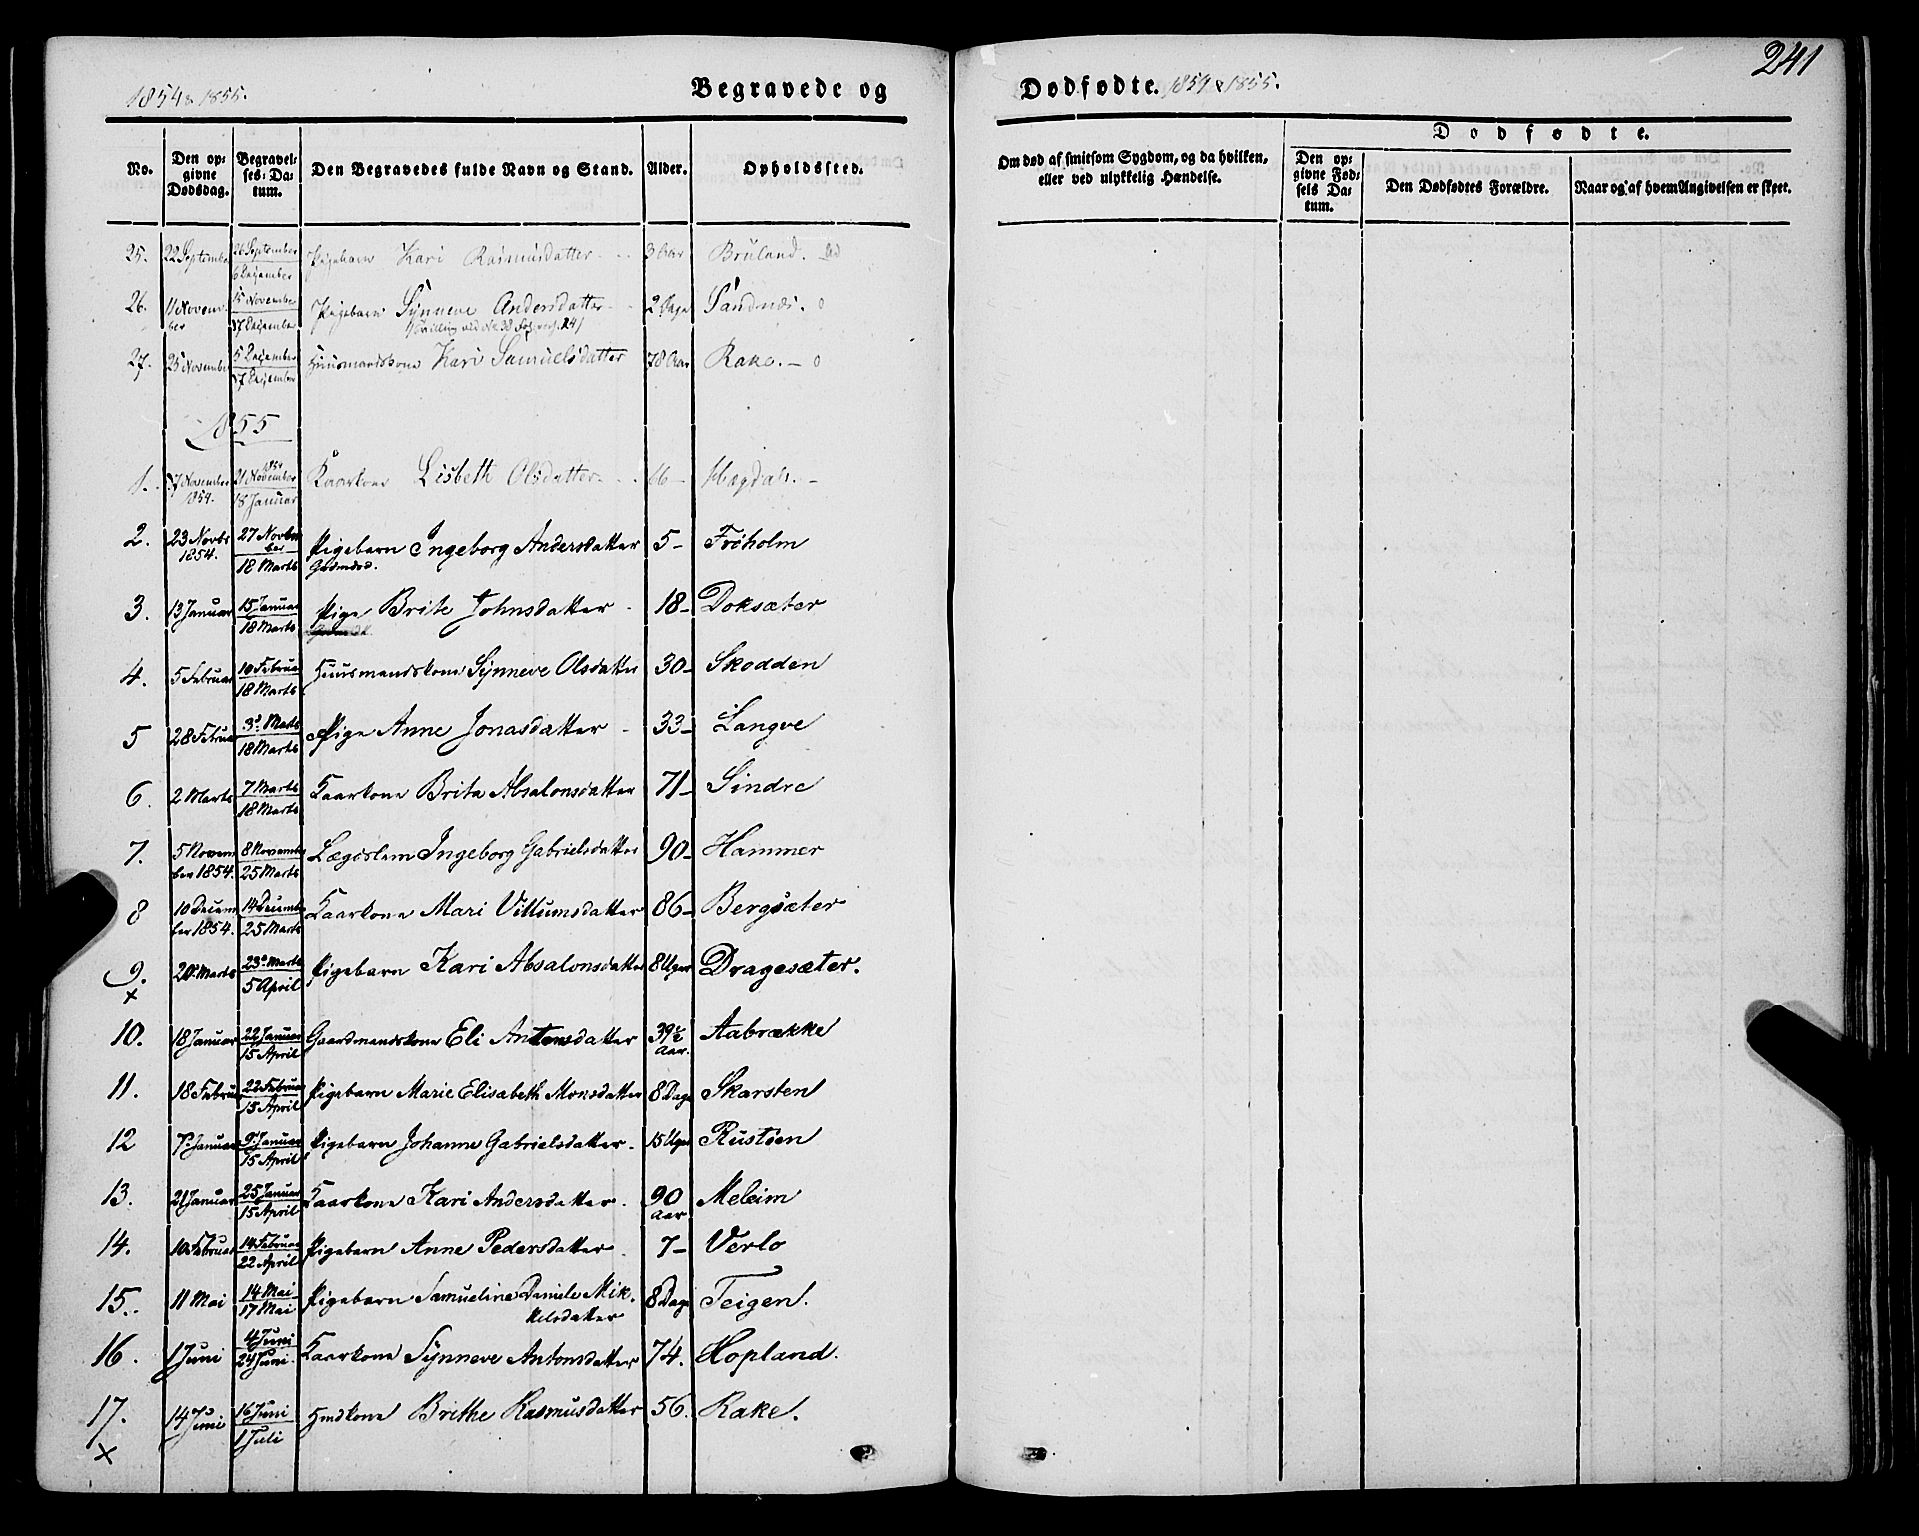 241
1854 & 1855.
Begravede og
Dødfødte. 1854 & 1855.
No.
Den opgivne Dødsdag.
Begravelses-Datum.
Den Begravedes fulde Navn og Stand.
Alder.
Opholdssted.
Om død af smitsom Sygdom, og da hvilken, eller ved ulykkelig Hændelse.
Dødfødte.
Den opgivne Fødsels Datum.
Den Dødfødtes Forældre.
Naar og af hvem Angivelsen er skeet.
25. 22 September 26 September 6 Dezember Pigebarn Kari Rasmusdatter 3 Aar Bruland.
26. 11 November 15 November 17 Dezember Pigebarn Synneve Andersdatter 2 Dage Sandnæs.
27. 25 November 5 Dezember 17 Dezember Huusmandskone Kari Samuelsdatter 78 Aar Rake. –
1855
1. 17 November 1854. 21 November 1854 18 Januar Kaarkone Lisbeth Olsdatter 66 –
2. 23 Novbr 1854. 27 November 18 Marts Pigebarn Ingeborg Andersdatter 5 – Frøholm
3. 13 Januar 15 Januar 18 Marts Pige Brite Johnsdatter 18 – Doksæter
4. 5 Februar 10 Februar 18 Marts Huusmandskone Synneve Olsdatter 30 – Skodden
5 28 Februar 3d Marts 18 Marts Pige Anne Jonasdatter 33 – Langve
6. 2 Marts 7 Marts 18 Marts Kaarkone Brita Absalonsdatter 71 – Sindre
7. 5 November 1854. 8 November 25 Marts Lægdslem Ingeborg Gabrielsdatter 90 – Hammer
8 10 December 1854. 14 December 25 Marts Kaarkone Mari Villumsdatter 86 – Bergsæter
9. 20 Marts 23d Marts 5 April Pigebarn Kari Absalonsdatter 8 Uger Dragesæter.
x
10. 18 Januar 22 Januar 15 April Gaardmandskone Eli Antonsdatter 39½ Aar. Aabrække
11. 18 Februar 22 Februar 15 April Pigebarn Marie Elisabeth Monsdatter 8 Dage Skarsten
12 7 Januar 9 Januar 15 April Pigebarn Johanne Gabrielsdatter 15 Uger Rustøen
13. 21 Januar 25 Januar 15 April Kaarkone Kari Andersdatter 90 Aar Meleim
14. 10 Februar 14 Februar 22 April Pigebarn Anne Pedersdatter 7 – Verlo
15. 11 Mai 14 Mai 17 Mai Pigebarn Samueline Daniele Mikkelsdatter 8 Dage Teigen.
16. 1 Juni 4 Juni 24 Juni Kaarkone Synneve Antonsdatter 74. Hopland.
17. 14 Juni 16 Juni 1 Juli Hmdkone Brithe Rasmusdatter 56. Rake.
x